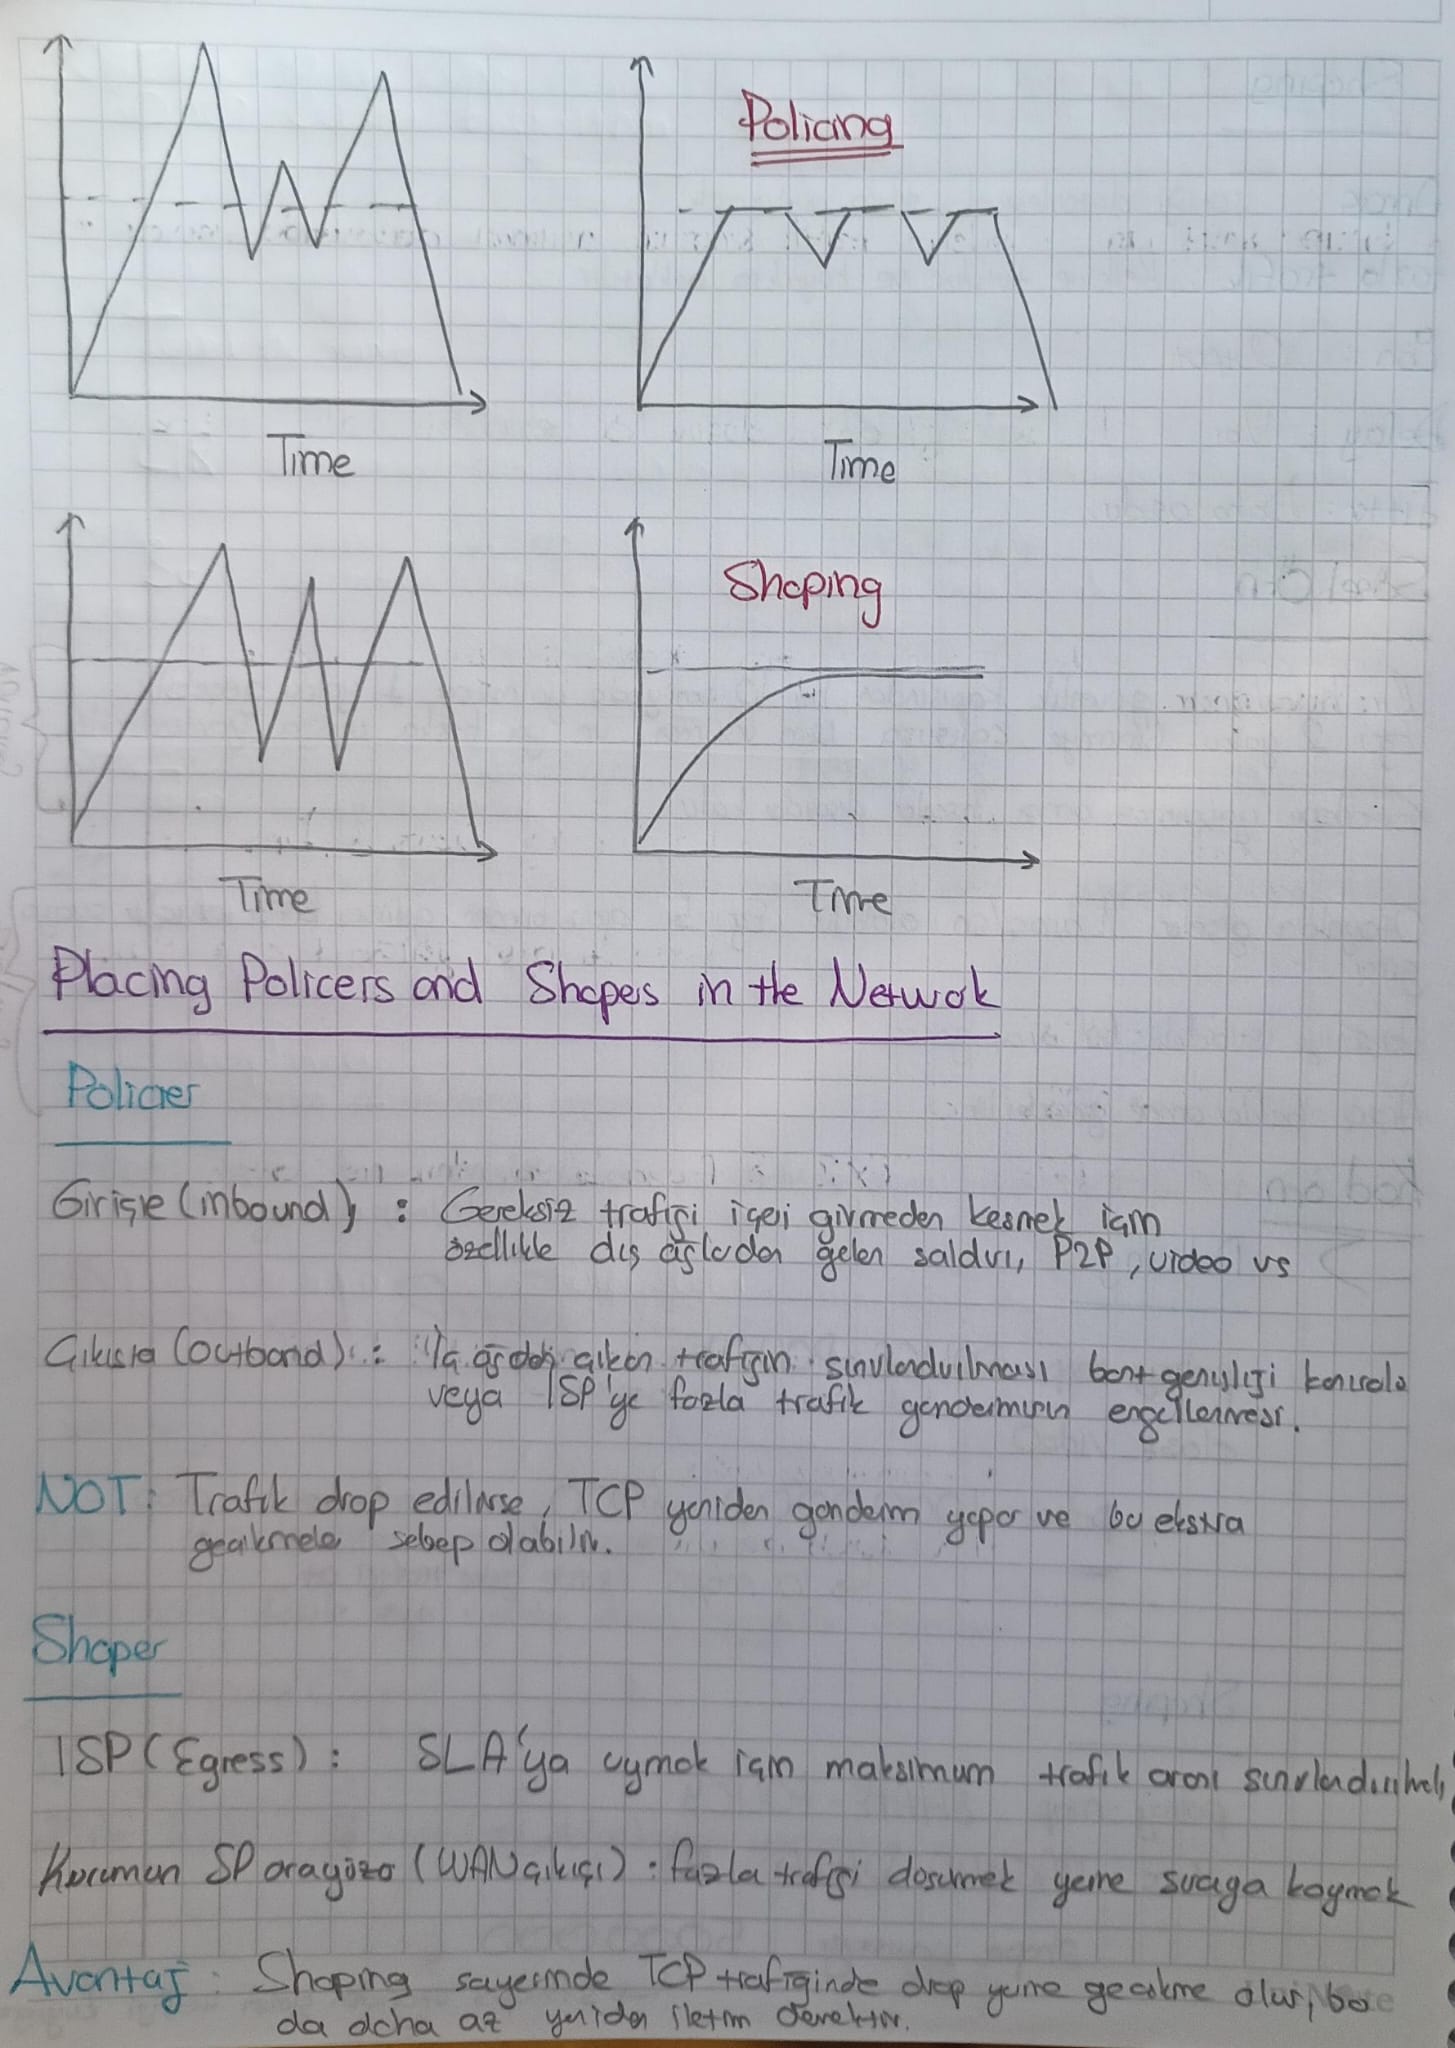 Policing
Time
Time
Shaping
Time
Time
Placing Policers and Shapes in the Netwok
Policier
Girişte (inbound) : Gereksiz trafiği içeri girmeden kesmek için
özellikle dış ağlardan gelen saldırı, P2P, video vs
Çıkışta (Outband) : İç ağdan çıkan trafiğin sınırlandırılması bant genişliği kontrolü
veya ISP'ye fazla trafik gönderiminin engellenmesi.
NOT: Trafik drop edilirse, TCP yeniden gönderim yapar ve bu ekstra
gecikmele sebep olabilir.
Shaper
ISP (Egress) : SLA'ya uymak için maksimum trafik oranı
Kurumun SP arayüzü (WAN çıkışı) : fazla trafiği düşürmek yerine sıraya koymak
Avantaj : Shaping sayesinde TCP trafiğinde drop yerine gecikme olur, bu
da daha az yeniden iletim